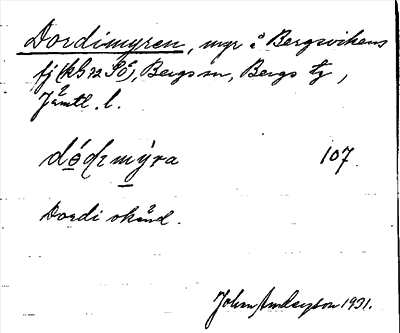 Dordimyren, myr å Bergsvikens
fj (kS 72 SÖ), Bergs sn, Bergs tg,
Jämtl. l.
dó̱ɖɩmýra 107
Dordi okänd.
John Anderson 1931.